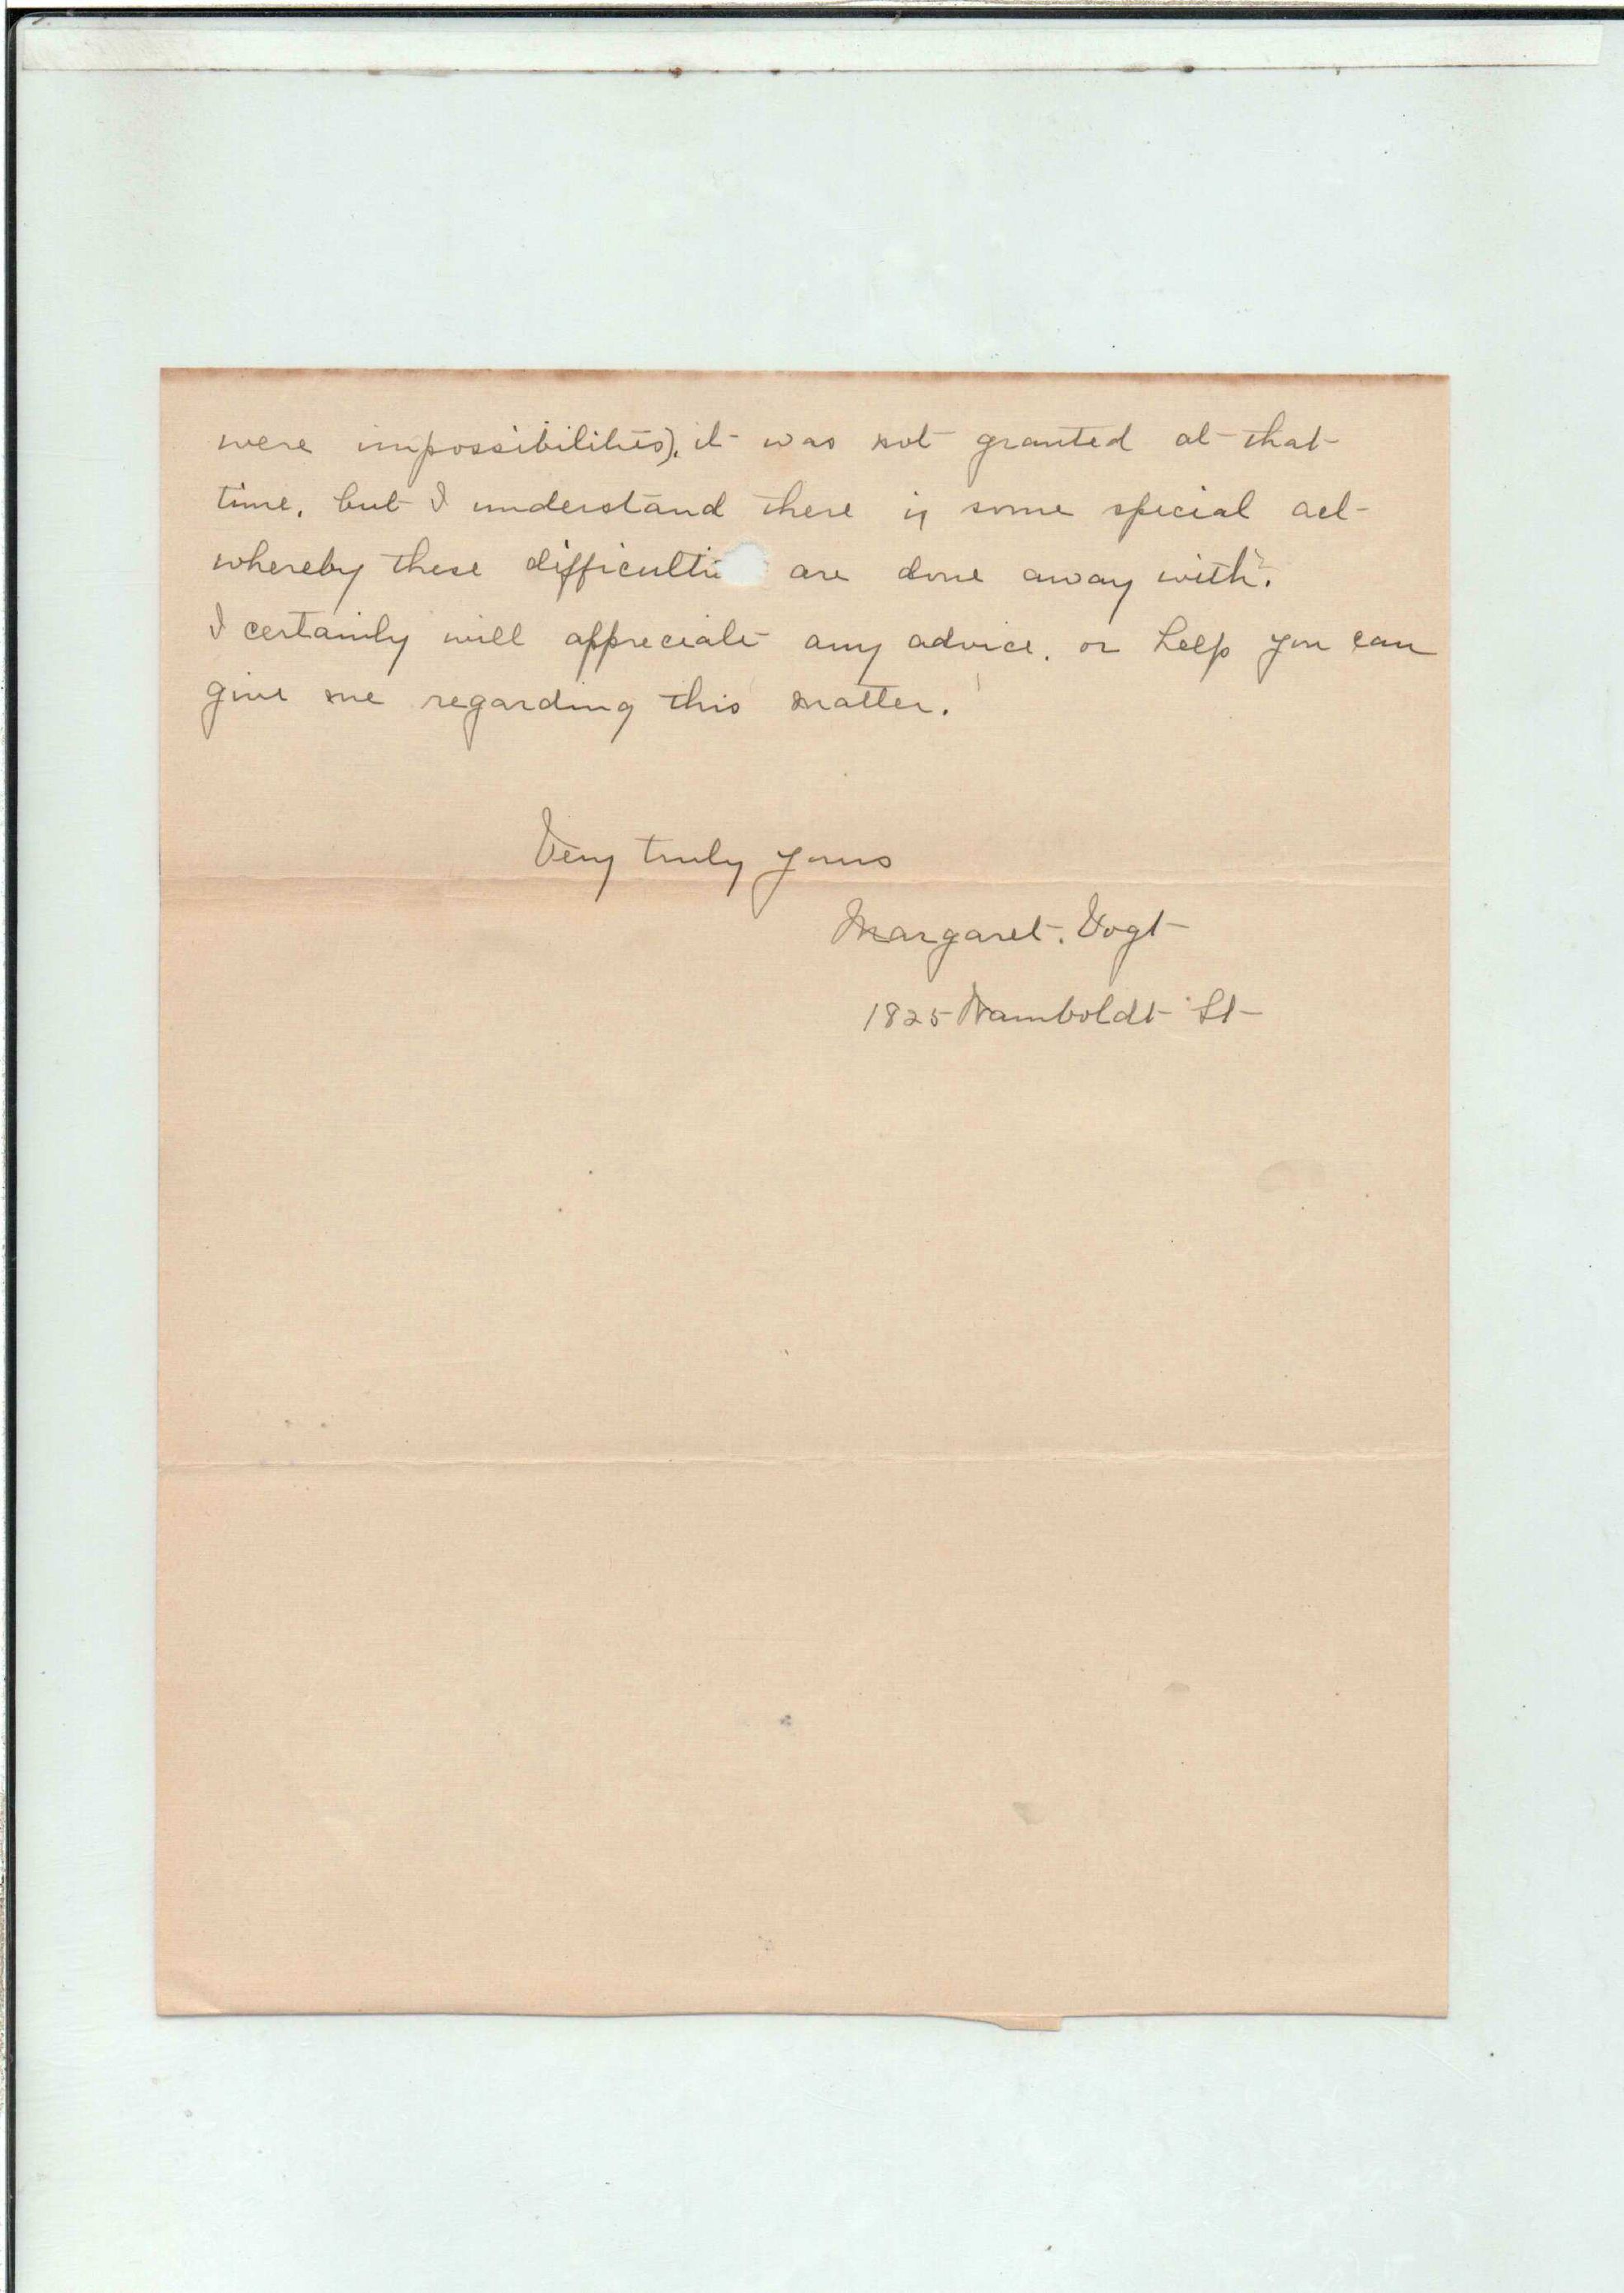 were impossibilities), it was not granted at that
time, but I understand there is some special act
whereby these difficultie are done away with.
I certainly will appreciate any advice, or help you can
give me regarding this matter.
Very truly yours
Margaret. Vogt
1825 Wamboldt St